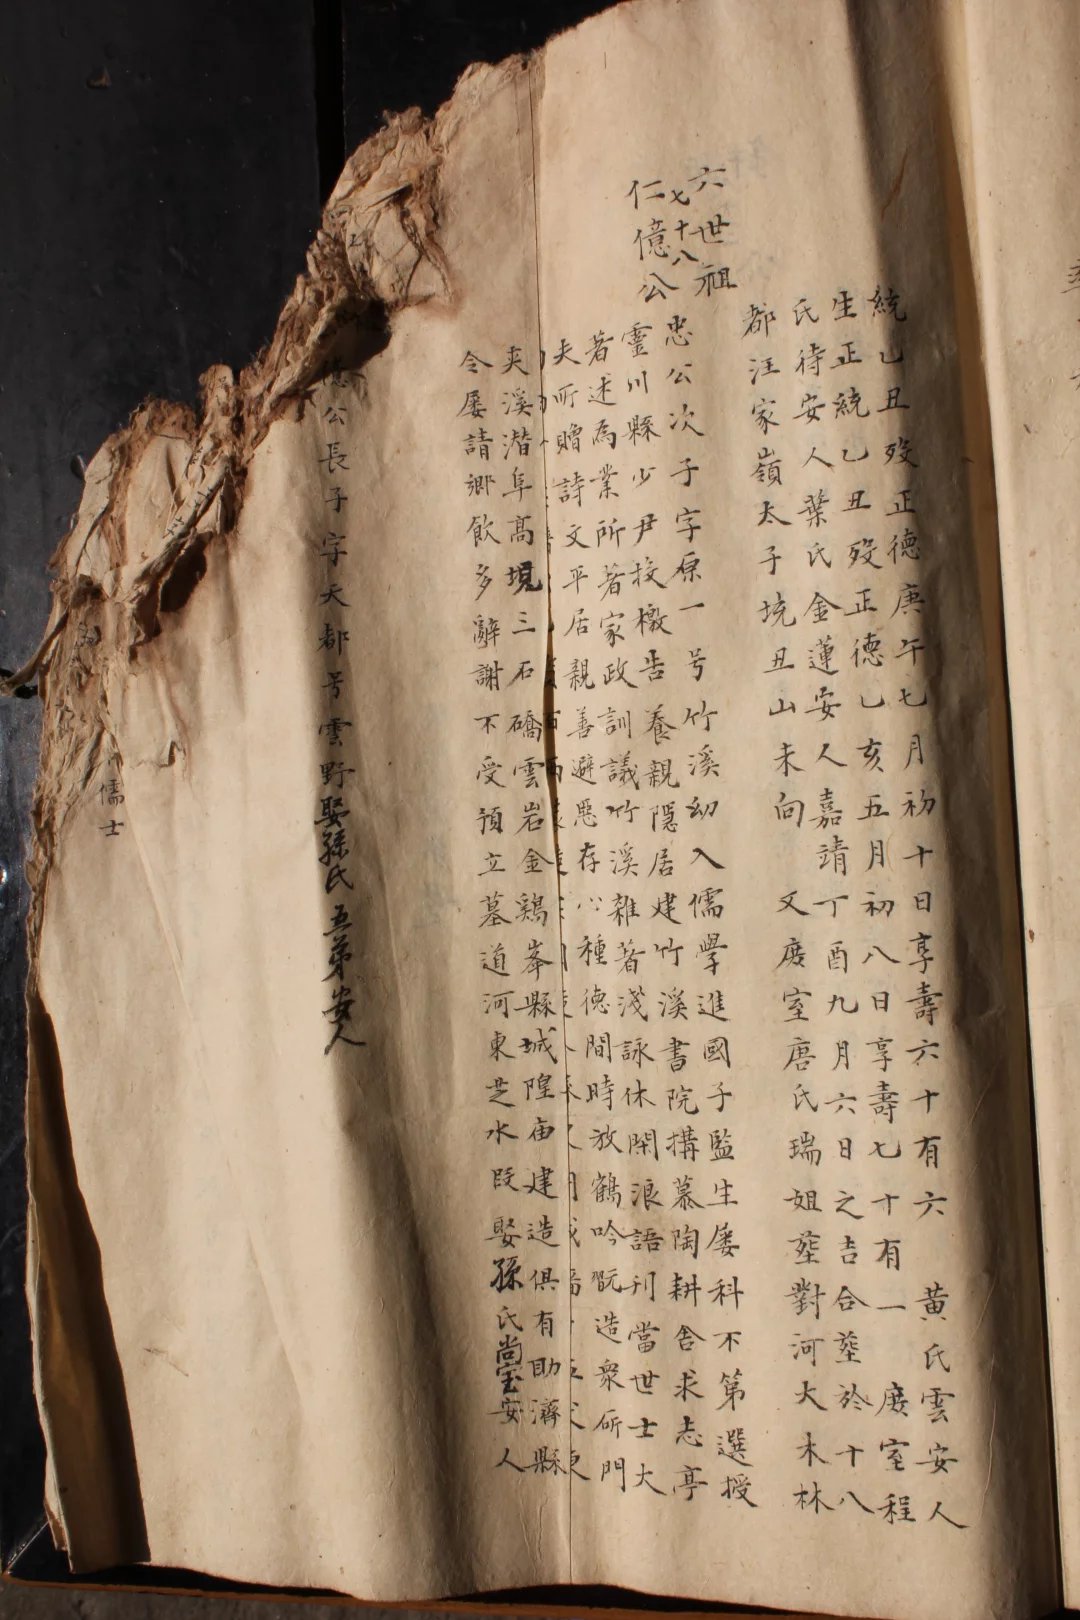 統乙丑歿正德庚午七月初十日享壽六十有六 黄氏雲安人
生正統乙丑歿正德乙亥五月初八日享壽七十有一 廢室程
氏待安人葉氏金蓮安人嘉靖丁酉九月六日之吉合塟於十八
都汪家嶺太子坑丑山未向 又廢室唐氏瑞姐塟對河大木林
六世祖
七十八
仁億公
忠公次子字原一号竹溪幼入儒學進國子監生屡科不第選授
靈川縣少尹投檄告養親隱居建竹溪書院搆慕陶耕舍求志亭
著述為業所著家政訓議竹溪雜著淺詠休閑浪語刊當世士大
夫所贈詩文平居親善避惡存心種德間時放鶴吟翫造衆斫門
夾溪潜阜高堨三石礄雲岩金鷄峯縣城隍庙建造俱有助濟縣
令屡請鄉飲多辭謝不受預立墓道河東芝水段娶孫氏尚宝安人
億公長子字天都号雲野娶孫氏五弟安人
儒士